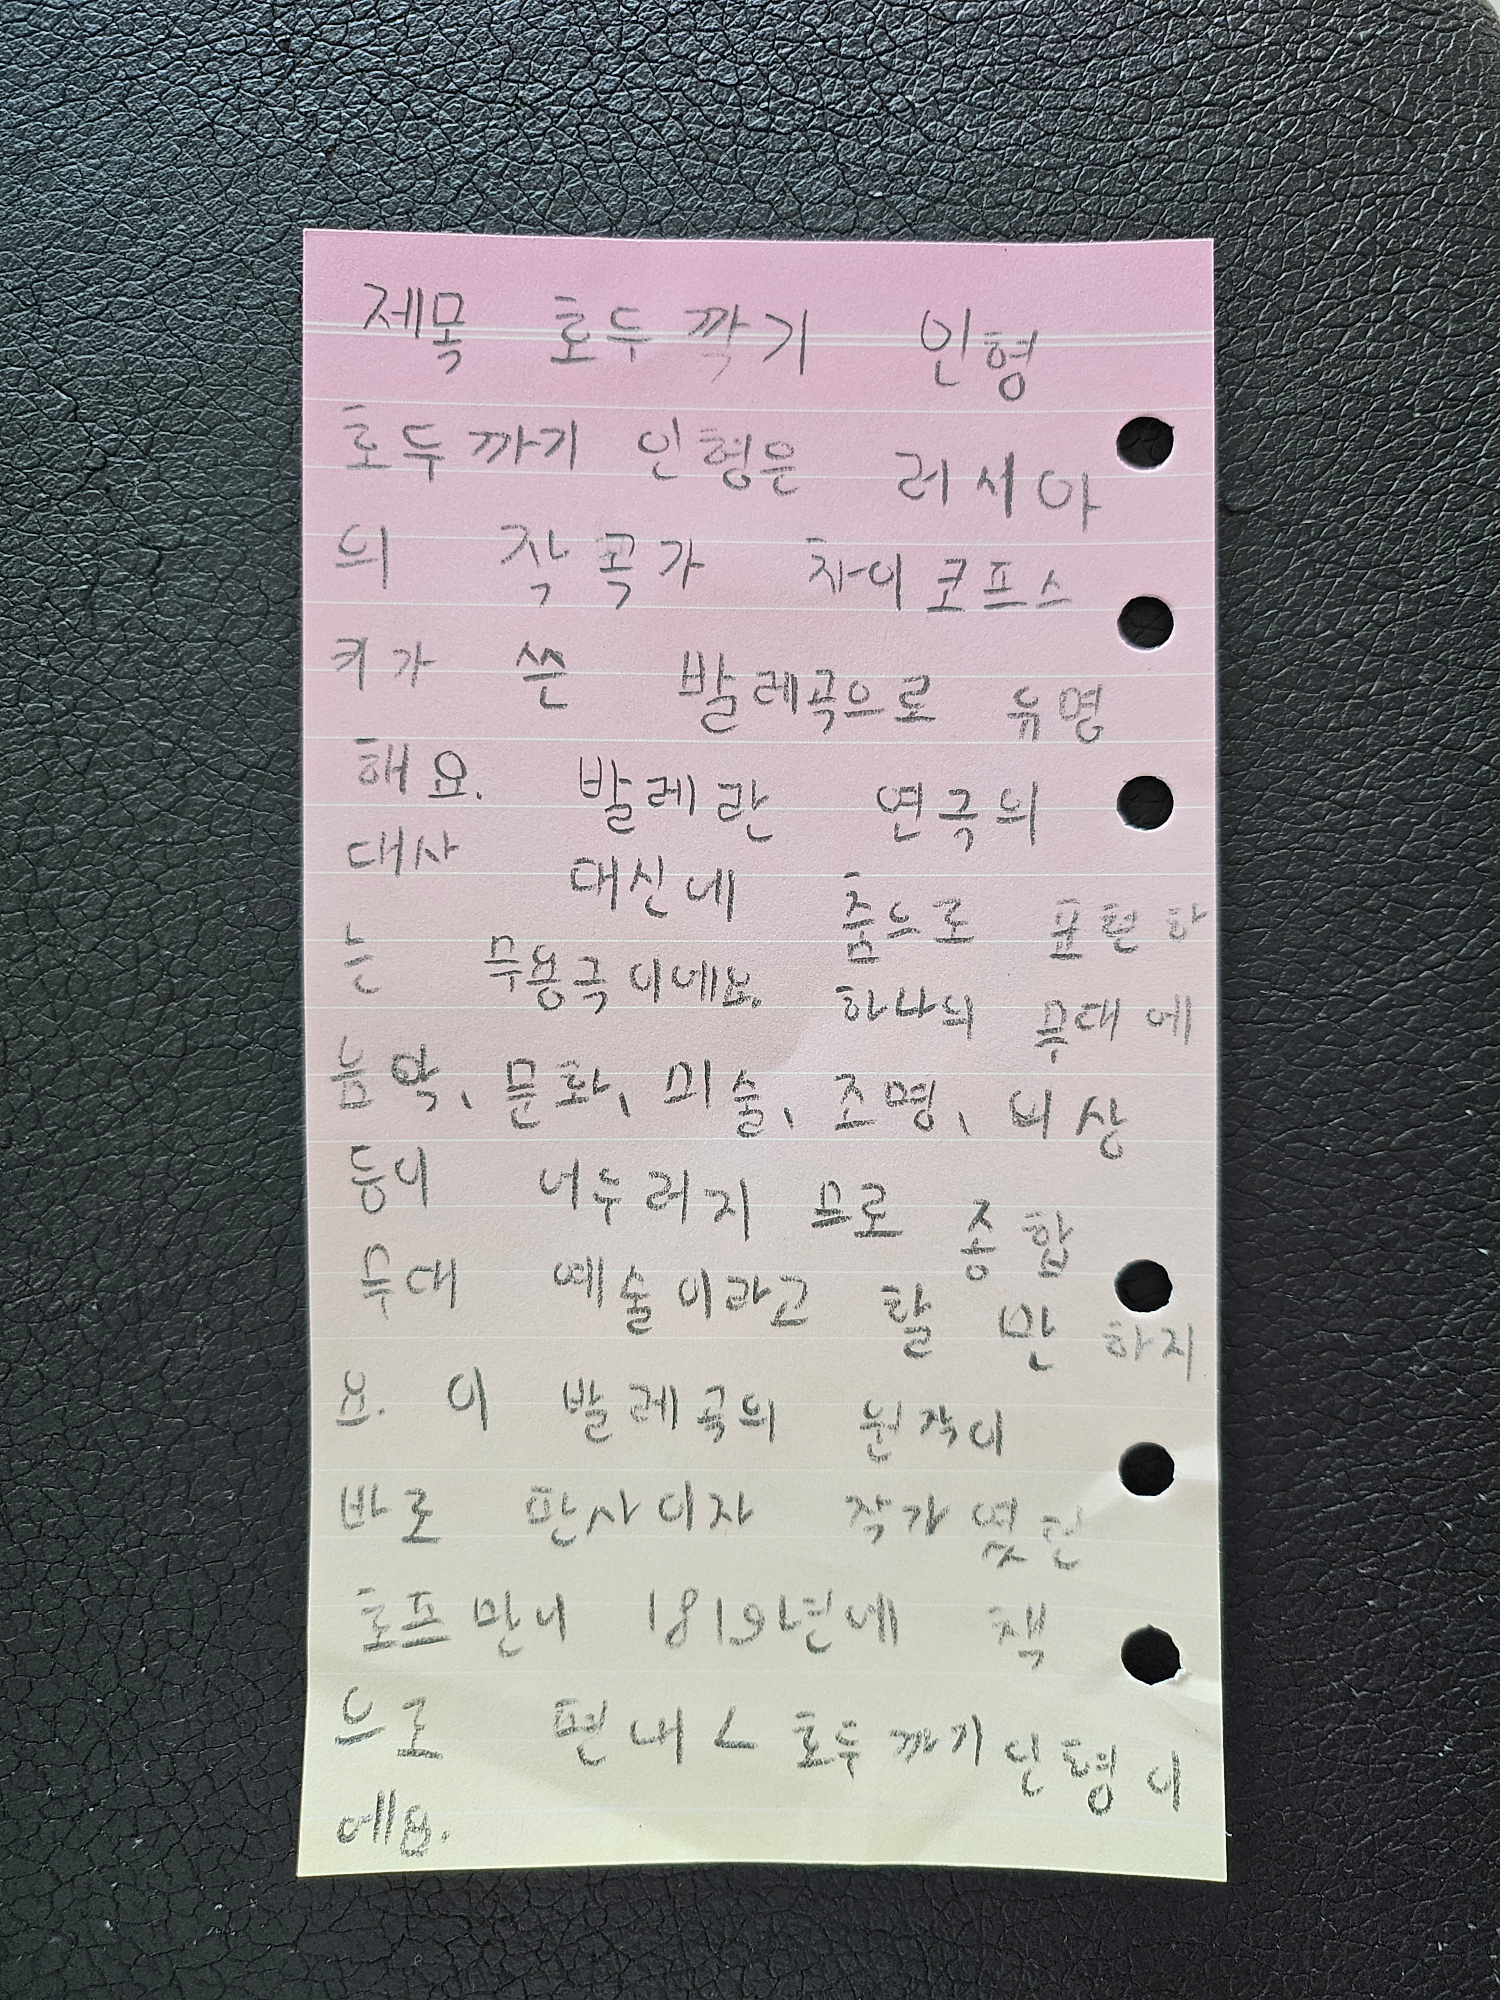 제목 호두깍기 인형
호두까기 인형은 러시아
의 작곡가 차이코프스
키가 쓴 발레곡으로 유명
해요. 발레란 연극의
대사 대신네 춤으로 표현하
는 무용극이네요. 하나의 무대에
음악, 문화, 미술, 조명, 의상
등이 어우러지므로 종합
무대 예술이라고 할 만 하지
요. 이 발레곡의 원작이
바로 판사이자 작가였던
호프만니 1819년네 책
으로 펴내 < 호두까기인형이
에요.